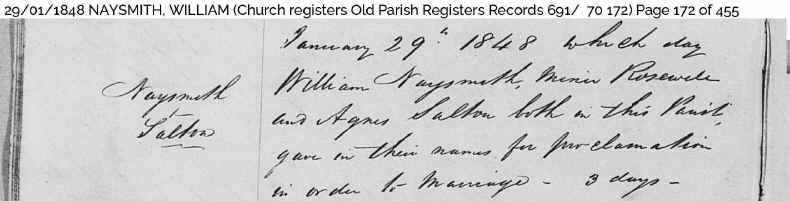 29/01/1848 NAYSMITH, WILLIAM (Church registers Old Parish Registers Records 691/ 70 172) Page 172 of 455
January 29th 1848 which day
Naysmith
Salton
William Naysmith, Miner Rosewele
and Agnes Salton both in this Parish,
gave in their names for proclamation
in order to Marriage - 3 days -